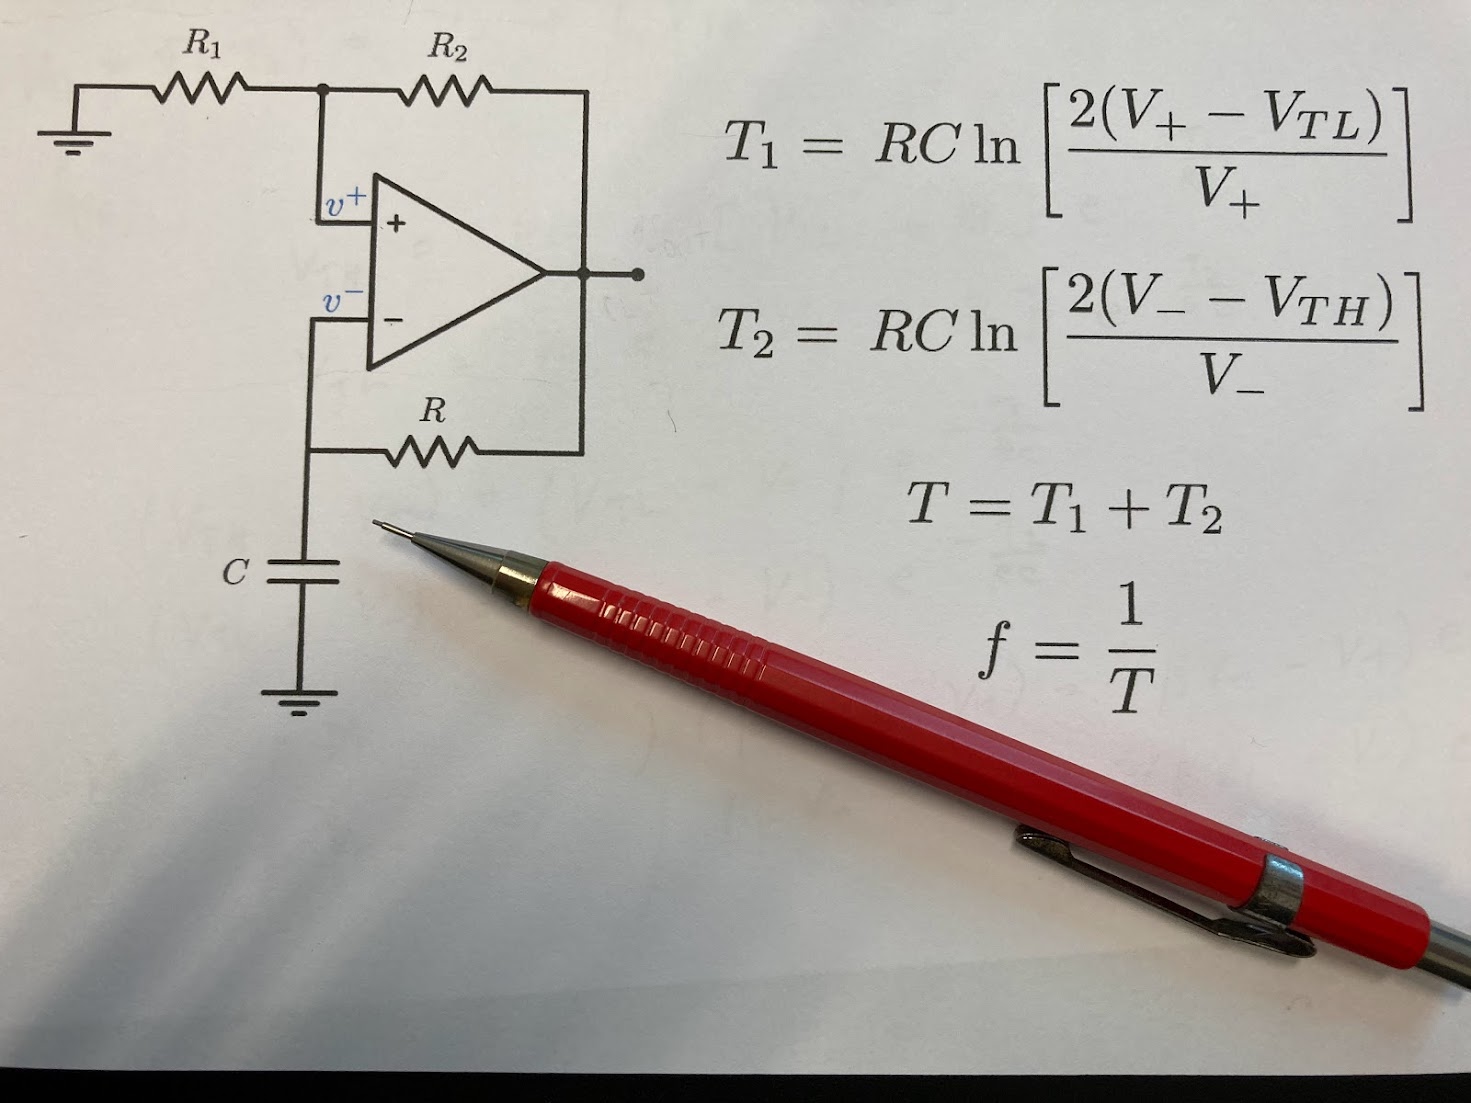 R₁ R₂
v⁺ +
v⁻ −
R
C
T₁ = RC ln [2(V₊ − V_{TL}) / V₊]
T₂ = RC ln [2(V₋ − V_{TH}) / V₋]
T = T₁ + T₂
f = 1/T